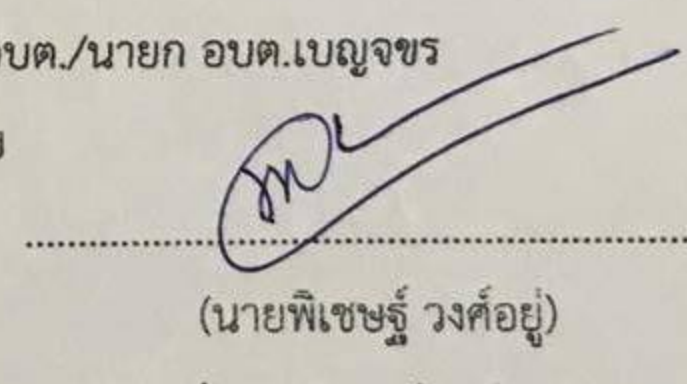 บต./นายก อบต.เบญจขร
(นายพิเชษฐ์ วงศ์อยู่)